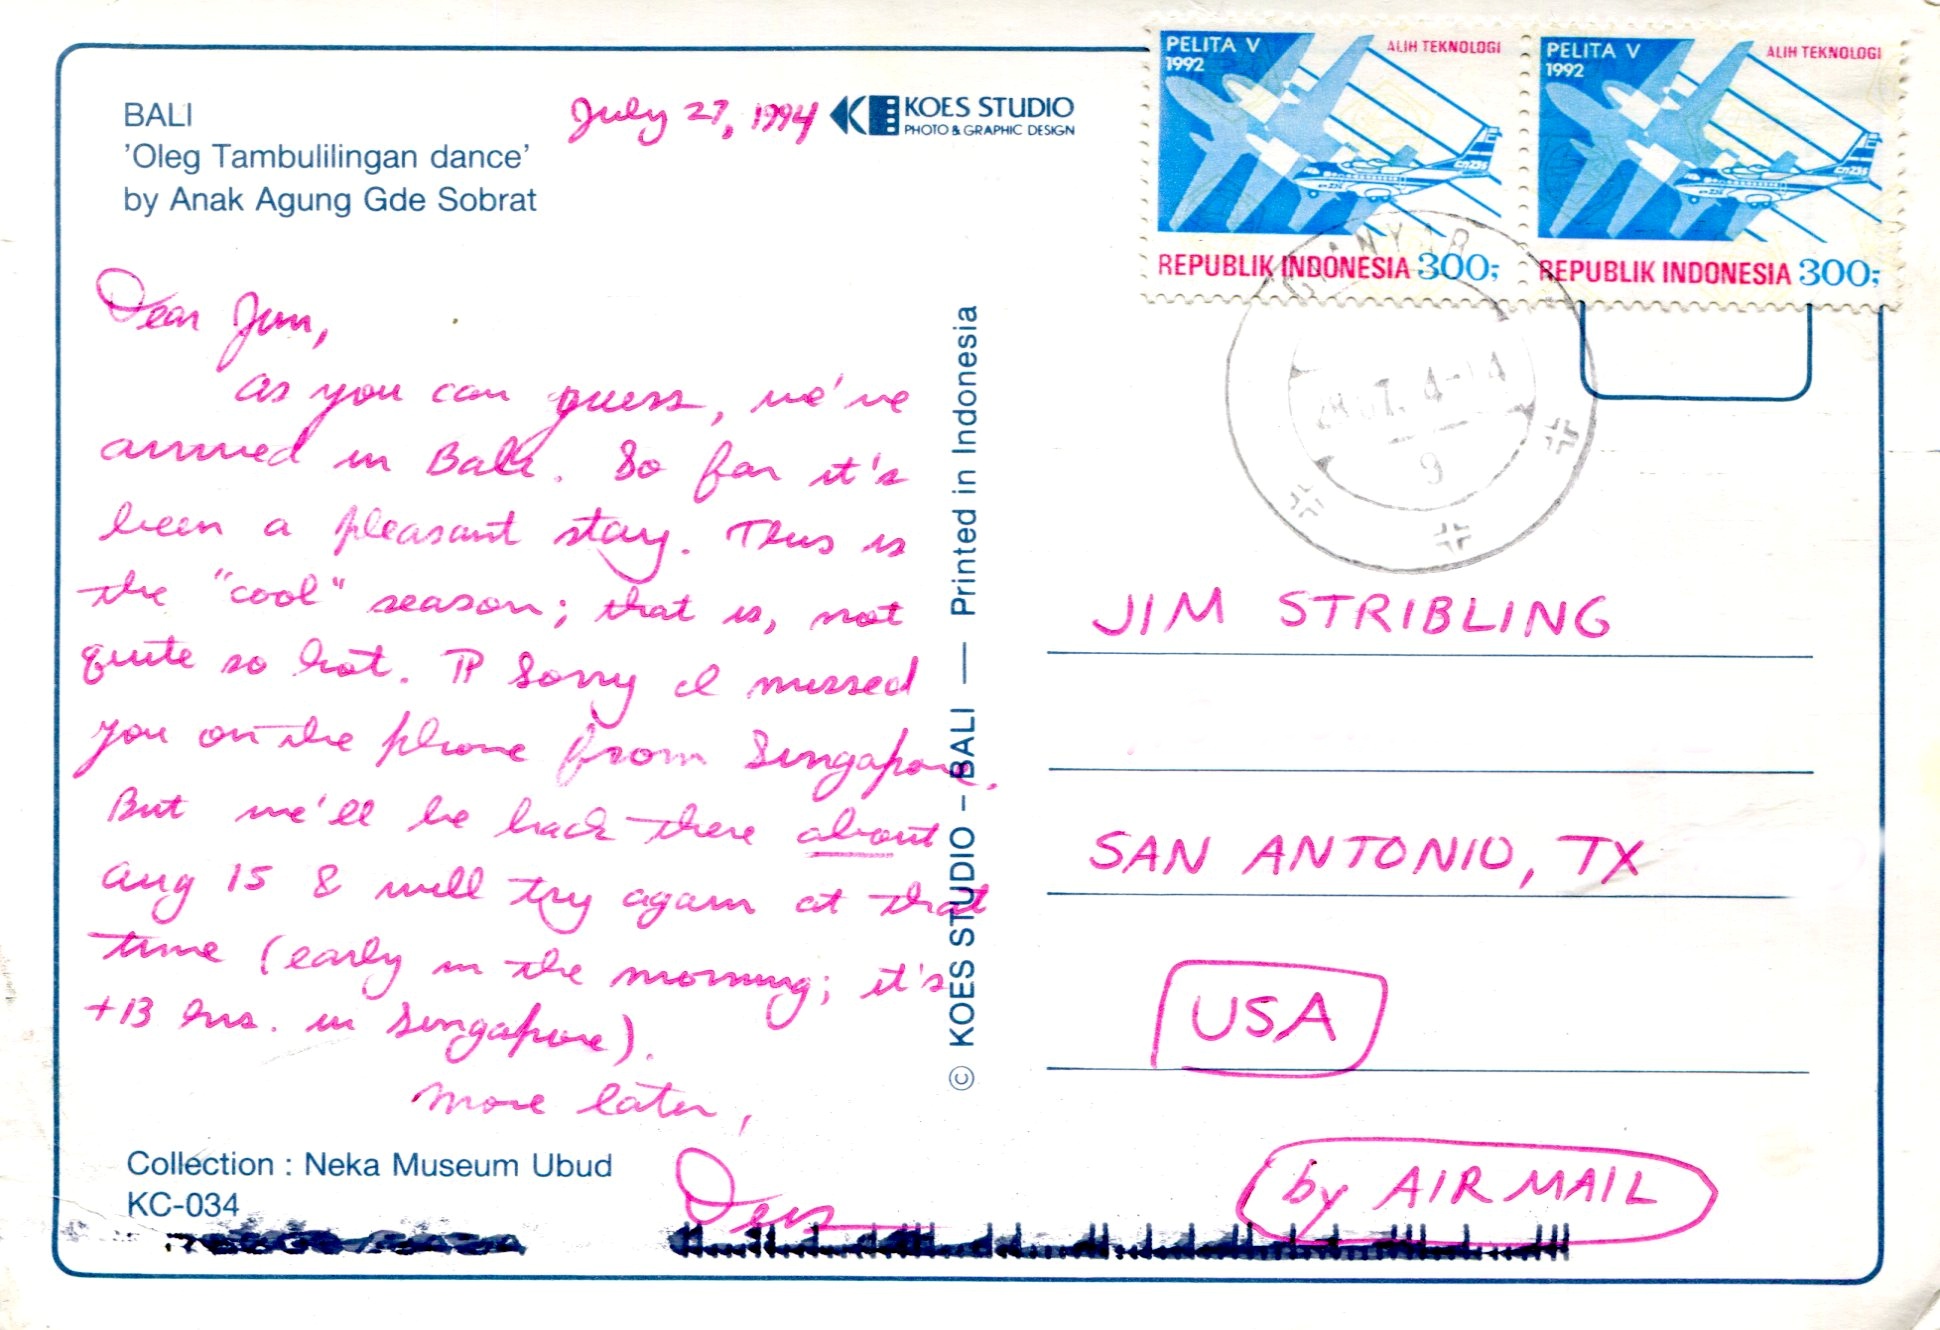 BALI
'Oleg Tambulilingan dance'
by Anak Agung Gde Sobrat
July 27, 1994
KOES STUDIO
PHOTO & GRAPHIC DESIGN
Dear Jim,
As you can guess, we've
arrived in Bali. So far it's
been a pleasant stay. This is
the "cool" season; that is, not
quite so hot. ¶ Sorry I missed
you on the phone from Singapore.
But we'll be back there about
Aug 15 & will try again at that
time (early in the morning; it's
+13 hrs. in Singapore).
More later,
Collection : Neka Museum Ubud
KC-034
© KOES STUDIO – BALI — Printed in Indonesia
PELITA V
1992
ALIH TEKNOLOGI
CN235
REPUBLIK INDONESIA 300;
PELITA V
1992
ALIH TEKNOLOGI
CN235
REPUBLIK INDONESIA 300;
GIANYAR
9
JIM STRIBLING
SAN ANTONIO, TX
USA
by AIR MAIL